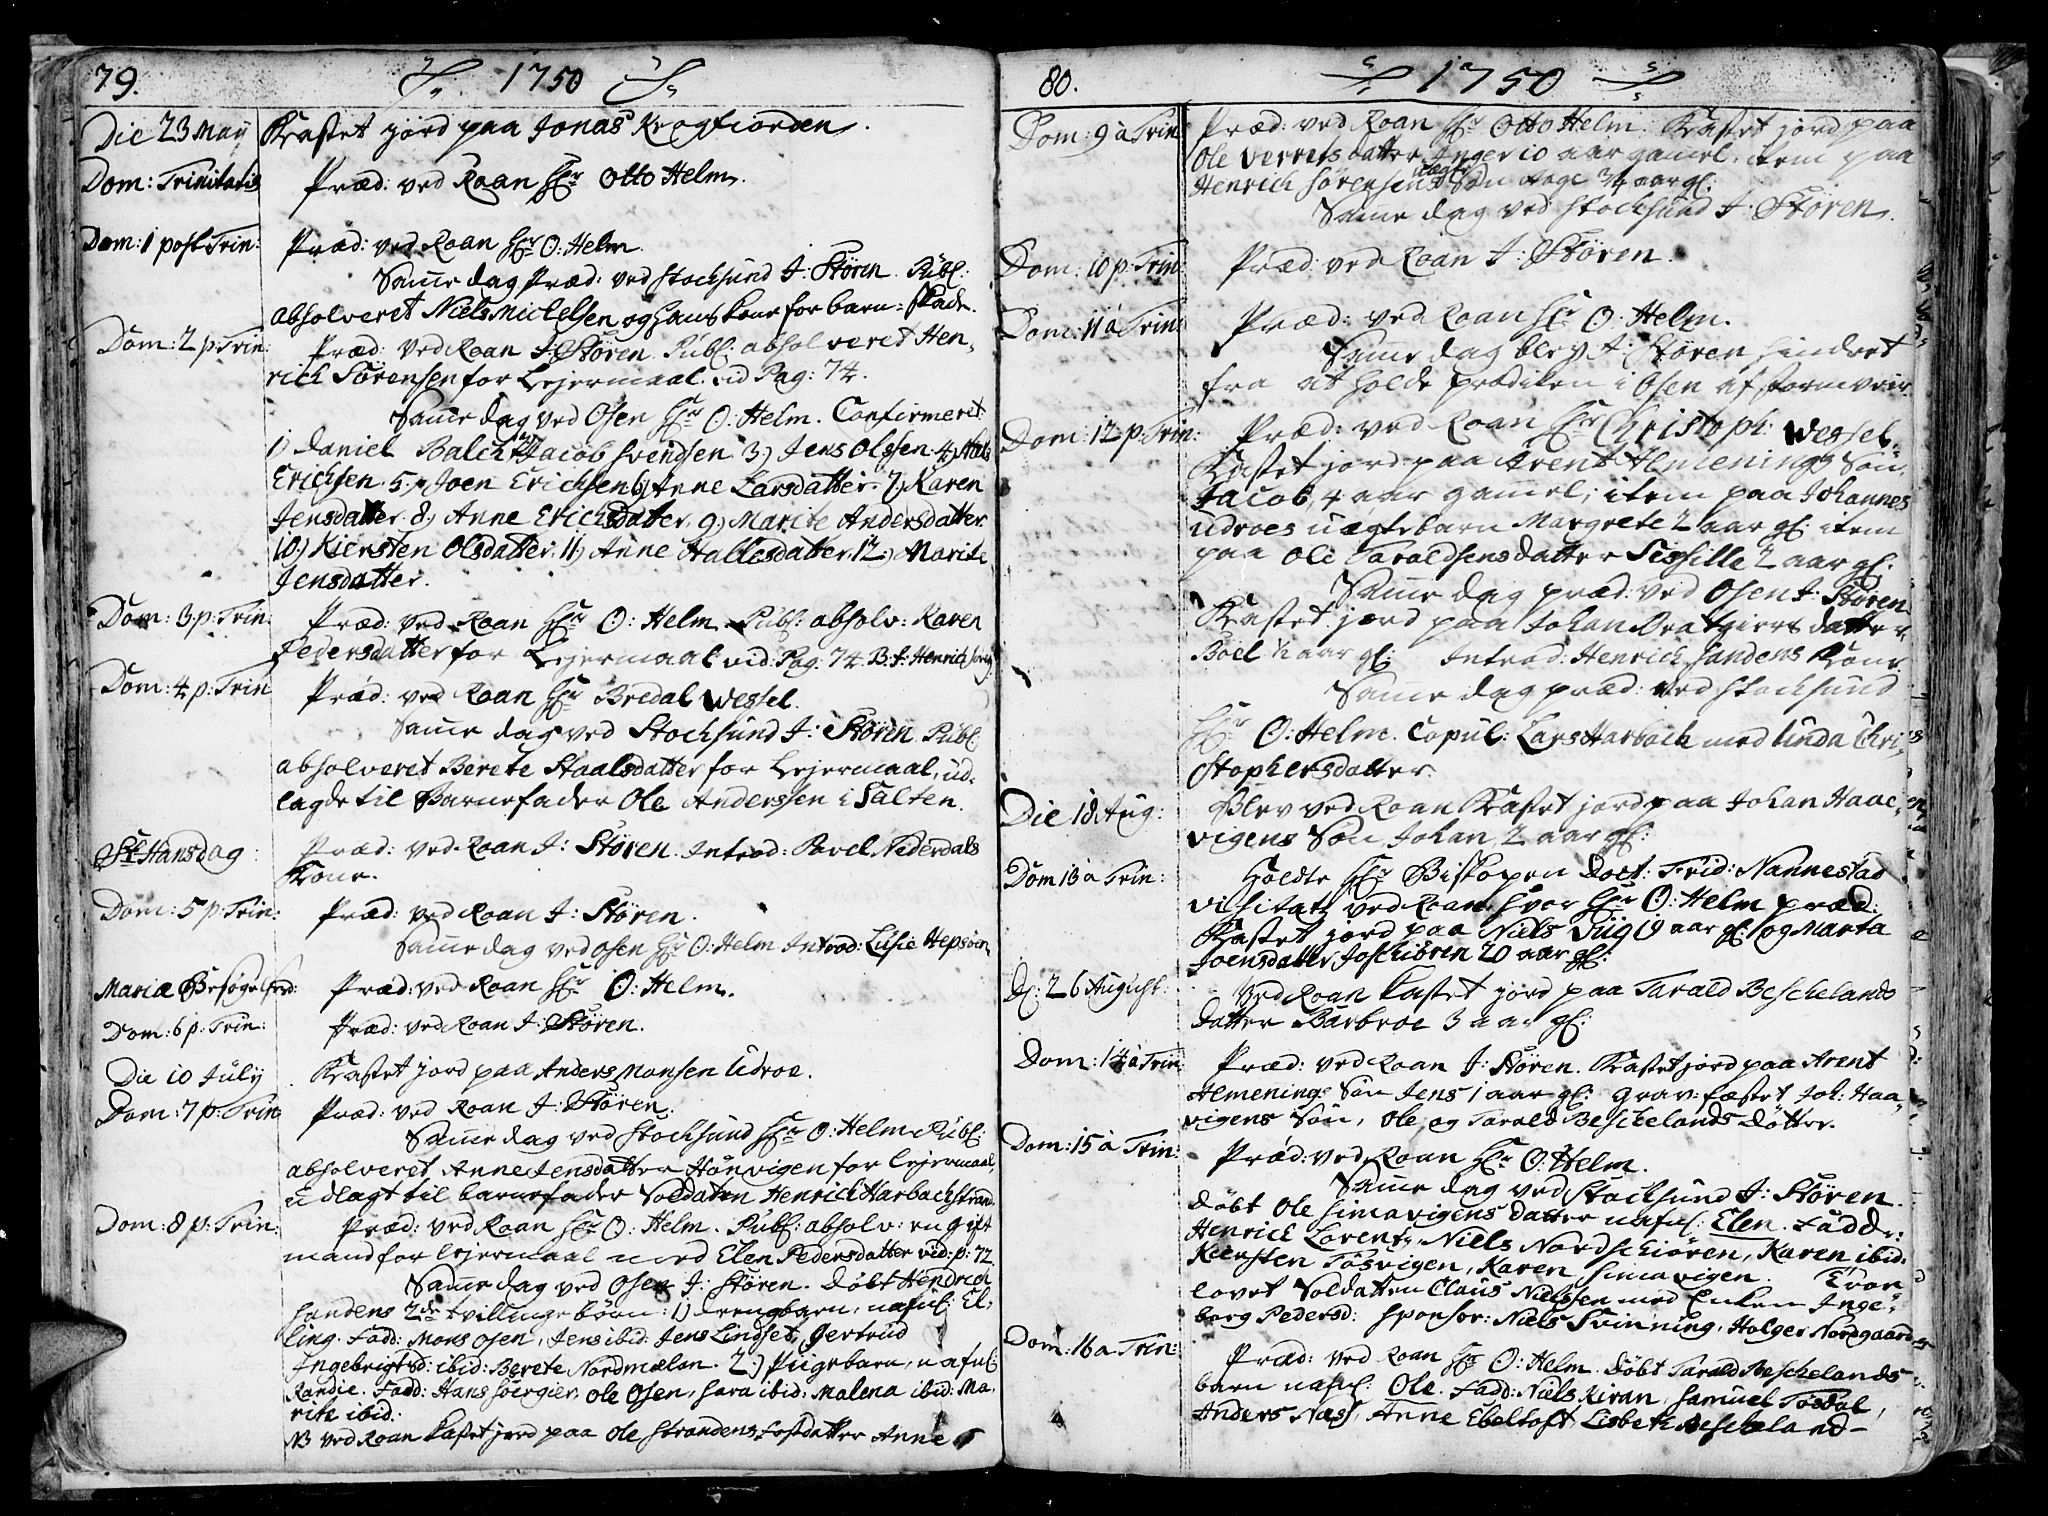 79. 1750
Die 23 Maÿ Kastet jord paa Jonas Krogfiorden.
Dom: Trinitatis Præd: ved Roan Hr Otto Helm.
Dom: 1 post Trin: Præd: ved Roan Hr O: Helm.
Samme dag Præd: ved Stocksund J: Stören. Publ:
absolveret Niels Michelsen og hans kone for barn: skade.
Dom: 2 p: Trin: Præd: ved Roan J: Stören. Publ: absolveret Hen,
rich Sörensen for Lejermaal. vid Pag: 74.
Samme dag ved Osen Hr O: Helm. Confirmeret
1) Daniel Balch 2) Jacob Svendsen 3.) Jens Olssen 4.)
Erichsen. 5.) Joen Erichsen 6) Anne Larsdatter. 7.) Karen
Jensdatter. 8.) Anne Erichsdatter, 9.) Marite Andersdatter
10.) Kiersten Olsdatter. 11.) Anne Hallesdatter. 12.) Marite
Jensdatter.
Dom: 3. p: Trin: Præd: ved Roan Hr O: Helm. Publ: absolv: Karen
Pedersdatter for Lejermaal vid: Pag: 74. B. f: Henrich
Dom: 4. p: Trin Præd: ved Roan Hr Bredal Wessel.
Samme dag ved Stocksund J: Stören. Publ:
absolveret Berete Staalsdatter for Lejermaal, ud,
lagde til Barnefader Ole Anderssen i Salten.
St Hansdag: Præd: ved Roan J: Stören. Introd: Povel Nederdals
Kone.
Dom: 5 p: Trin: Præd: ved Roan J: Stören.
Samme dag ved Osen Hr O: Helm Introd: Lusie Hepsöen,
Mariæ Besøgelsesd: Præd: ved Roan Hr O: Helm.
Dom: 6 p: Trin: Præd: ved Roan J: Stören.
Die 10 July Kastet jord paa Anders Monsen Udroe.
Dom: 7 p: Trin Præd: ved Roan J: Stören.
Samme dag ved Stocksund Hr O: Helm Publ:
absolveret Anne Jensdatter Hönvigen for lejermaal,
udlagt til barnefader Soldaten Henrich Harbachstrand
Dom: 8 p: Trin: Præd: ved Roan Hr O: Helm. Publ: absolv: en gift
mand for lejermaal med Elen Pedersdatter vid: p: 72.
Samme dag ved Osen J: Stören. Döbt Hendrich
Sandens 2de tvillingebörn: 1) drengbarn, nafnl: El,
ling. Fadd: Mons Osen, Jens ibid: Jens Lindset, Gertrud
Ingebrigtsd: ibid: Berete Nordmælan. 2.) Pigebarn, nafnl
Randie. Fadd: Hans Söergier, Ole Osen, Sara ibid: Malena ibid: Ma,
rite ibid:
NB ved Roan kastet jord paa Ole Strandens Fostdatter Anne
80. 1750
Dom: 9 a Trin Præd: ved Roan Hr Otto Helm. Kastet jord paa
Ole Verres datter Inger 10 aar gamel, item paa
Henrich Sörensens uægte Sön Aage 3/4 aar gl:
Samme dag ved Stocksund J: Stören.
Dom: 10 p: Trin: Præd: ved Roan J: Stören.
Dom: 11 a Trin: Præd: ved Roan Hr O: Helm.
Samme dag blev J: Stören hindret
fra at holde prædiken i Osen af stormveir.
Dom: 12 p: Trin: Præd: ved Roan Hr Christoph: Wessel.
Kastet jord paa Arent Hemenings Sön
Jacob, 4 aar gamel; item paa Johannes
Udroes uægte barn Margrete 2 aar gl: item
paa Ole Taraldsens datter Sissille 2 aar gl:
Samme dag præd: ved Osen J: Stören
Kastet jord paa Johan Dratgiers datter
Boel 1/2 aar gl: Introd: Henrich Sandens Kone
Samme dag præd: ved Stocksund
Hr O: Helm. Copul: Lars Harbach med Linda Chri,
stophersdatter.
Die 18 Aug: Blev ved Roan Kastet jord paa Johan Haae,
vigens Sön Johan 2 aar gl:
Dom 13 a Trin: Holdte Hr Biskopen Doct: Frid: Nannestad
Visitatz ved Roan. hvor Hr O: Helm præd:
Kastet jord paa Niels Viig 19 aar gl: og Marta
Joensdatter Joschiören 20 aar gl:
D: 26 August: Ved Roan kastet jord paa Tarald Beschelands
datter Barbroe 3 aar gl:
Dom: 14 a Trin: Præd: ved Roan J: Stören. Kastet jord paa Arent
Hemenings Sön Jens 1 aar gl: Gravfæstet Joh: Haa,
vigens Sön, Ole og Tarald Beschelands Döttre.
Dom: 15 a Trin: Præd: ved Roan Hr O: Helm.
Samme dag ved Stocksund J: Stören.
Döbt Ole Simavigens datter nafnl: Elen. Fadd:
Henrich Lorentz, Niels Nordschiören, Karen ibid.
Kiersten Tösvigen, Karen Simavigen. Trou
lovet Soldatten Claus Nielssen med Enken Inge,
borg Pedersd: Sponsor: Niels Svinning, Holger Nordgaard
Dom: 16 a Trin: Præd: ved Roan Hr O: Helm. Döbt Tarald Beschelands
barn nafnl: Ole. Fadd: Niels Kiran, Samuel Tösdal,
Anders Næss, Anne Ebeltoft Lisbeth Bescheland